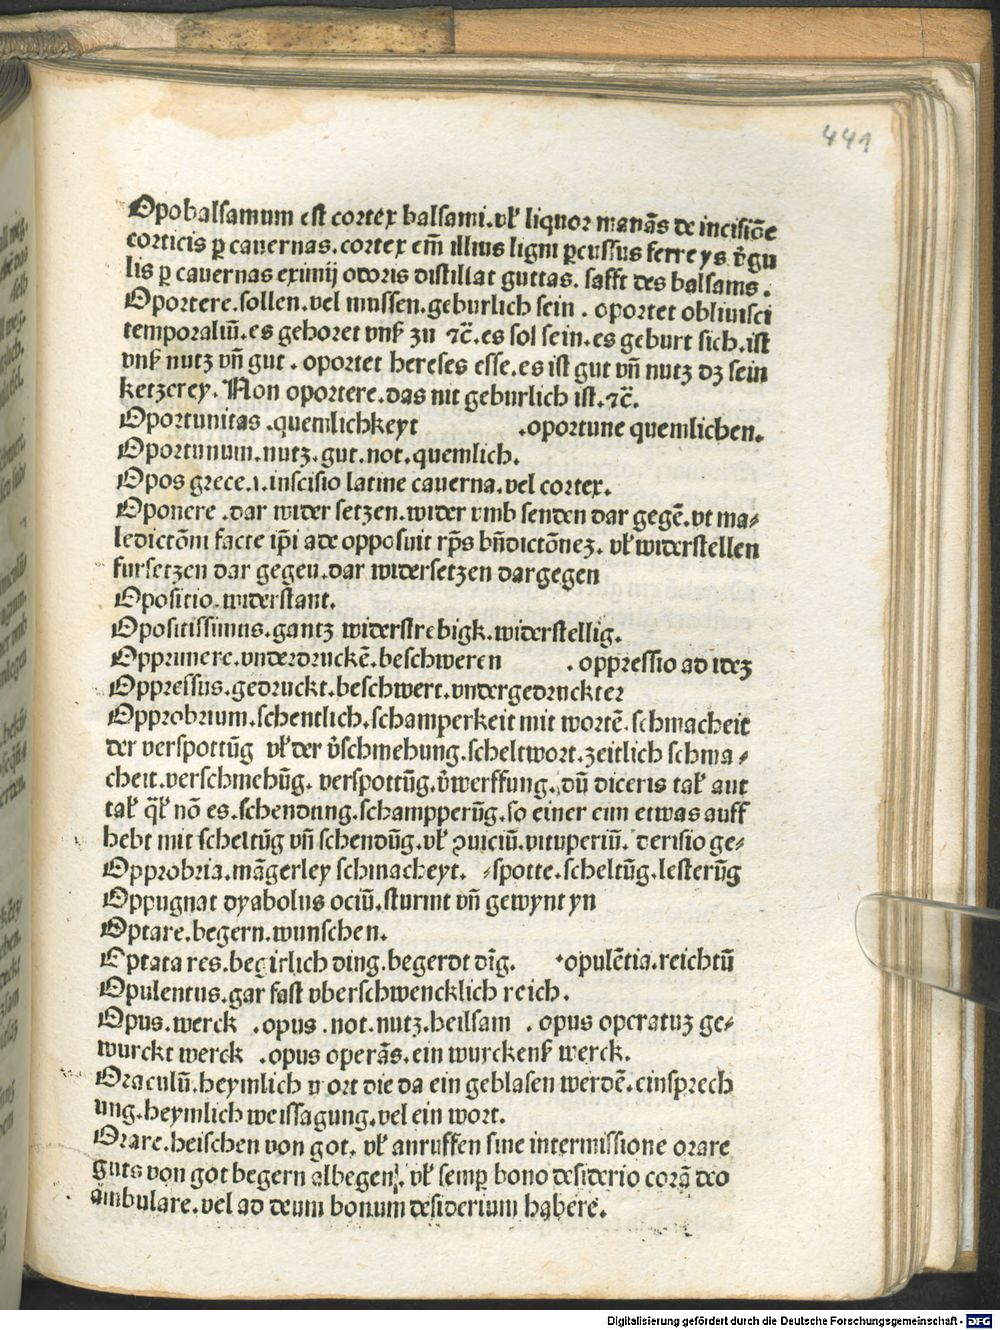 441
Opobalsamum est cortex balsami.vł liquor manãs de incisiõe
corticis ꝑ cauernas.cortex em̃ illius ligni ꝑcussus ferreys v̾gu
lis ꝑ cauernas eximij odoris distillat guttas. safft des balsams.
Oportere.sollen.vel mussen.geburlich sein . oportet obliuisci
temporaliũ.es gehoret vnß zu ⁊c̃.es sol sein.es geburt sich.ist
vnß nutz vñ gut . oportet hereses esse.es ist gut vñ nutz dz sein
ketzerey. Non oportere.das nit geburlich ist.⁊c̃.
Oportunitas .quemlichkeyt .oportune quemlichen.
Oportunum.nutz.gut.not.quemlich.
Opos grece.i.inscisio latine cauerna.vel cortex.
Oponere .dar wider setzen.wider vmb senden dar gegẽ.vt ma⸗
ledictõni facte ip̃i ade opposuit xp̃s bñdictõnez. vł widerstellen
fursetzen dar gegen.dar widersetzen dargegen
Opositio.widerstant.
Opositissimus.gantz widerstrebigk.widerstellig.
Opprimere.vnderdruckẽ.beschweren . oppressio ad idez
Oppressus.gedruckt.beschwert.vndergedruckter
Opprobrium.schentlich.schamperkeit mit wortẽ.schmacheit
der verspottũg vł der v̾schmehung.scheltwort.zeitlich schma⸗
cheit.verschmehũg. verspottũg.v̾werffung. dũ diceris tał aut
tał q̃ł nõ es.schendung.schampperũg.so einer eim etwas auff
hebt mit scheltũg vñ schendũg.vł ꝯuiciũ.vituperiũ. derisio ge⸗
Opprobria.mãgerley schmacheyt. ⸗spotte.scheltũg.lesterũg
Oppugnat dyabolus ociũ.sturmt vñ gewynt yn
Optare.begern.wunschen.
Optata res.begirlich ding.begerdt dĩg. .opulẽtia.reichtũ
Opulentus.gar fast vberschwencklich reich.
Opus.werck .opus .not.nutz.heilsam . opus operatuz ge⸗
wurckt werck .opus operãs.ein wurckenß werck.
Oraculũ.heymlich wort die da ein geblasen werdẽ.einsprech
ung.heymlich weissagung.vel ein wort.
Orare.heischen von got. vł anruffen sine intermissione orare
guts von got begern albegen. vł semꝑ bono desiderio corã deo
ambulare.vel ad deum bonum desiderium habere.
Digitalisierung gefördert durch die Deutsche Forschungsgemeinschaft - DFG